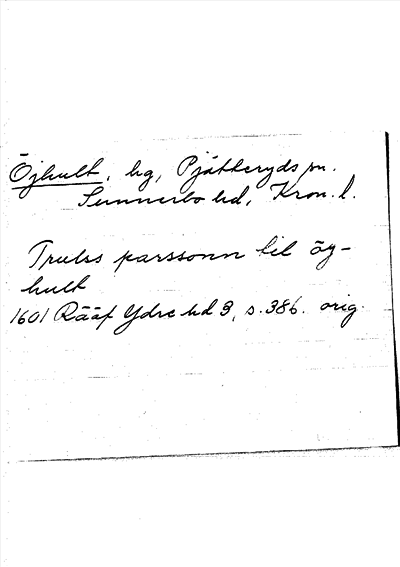 Öjhult, hg, Pjätteryds sn.
Sunnerbo hd, Kron. l.
Trulss parssonn til öy-
hult
1601 Rääf Ydre hd 3, s. 386. orig.